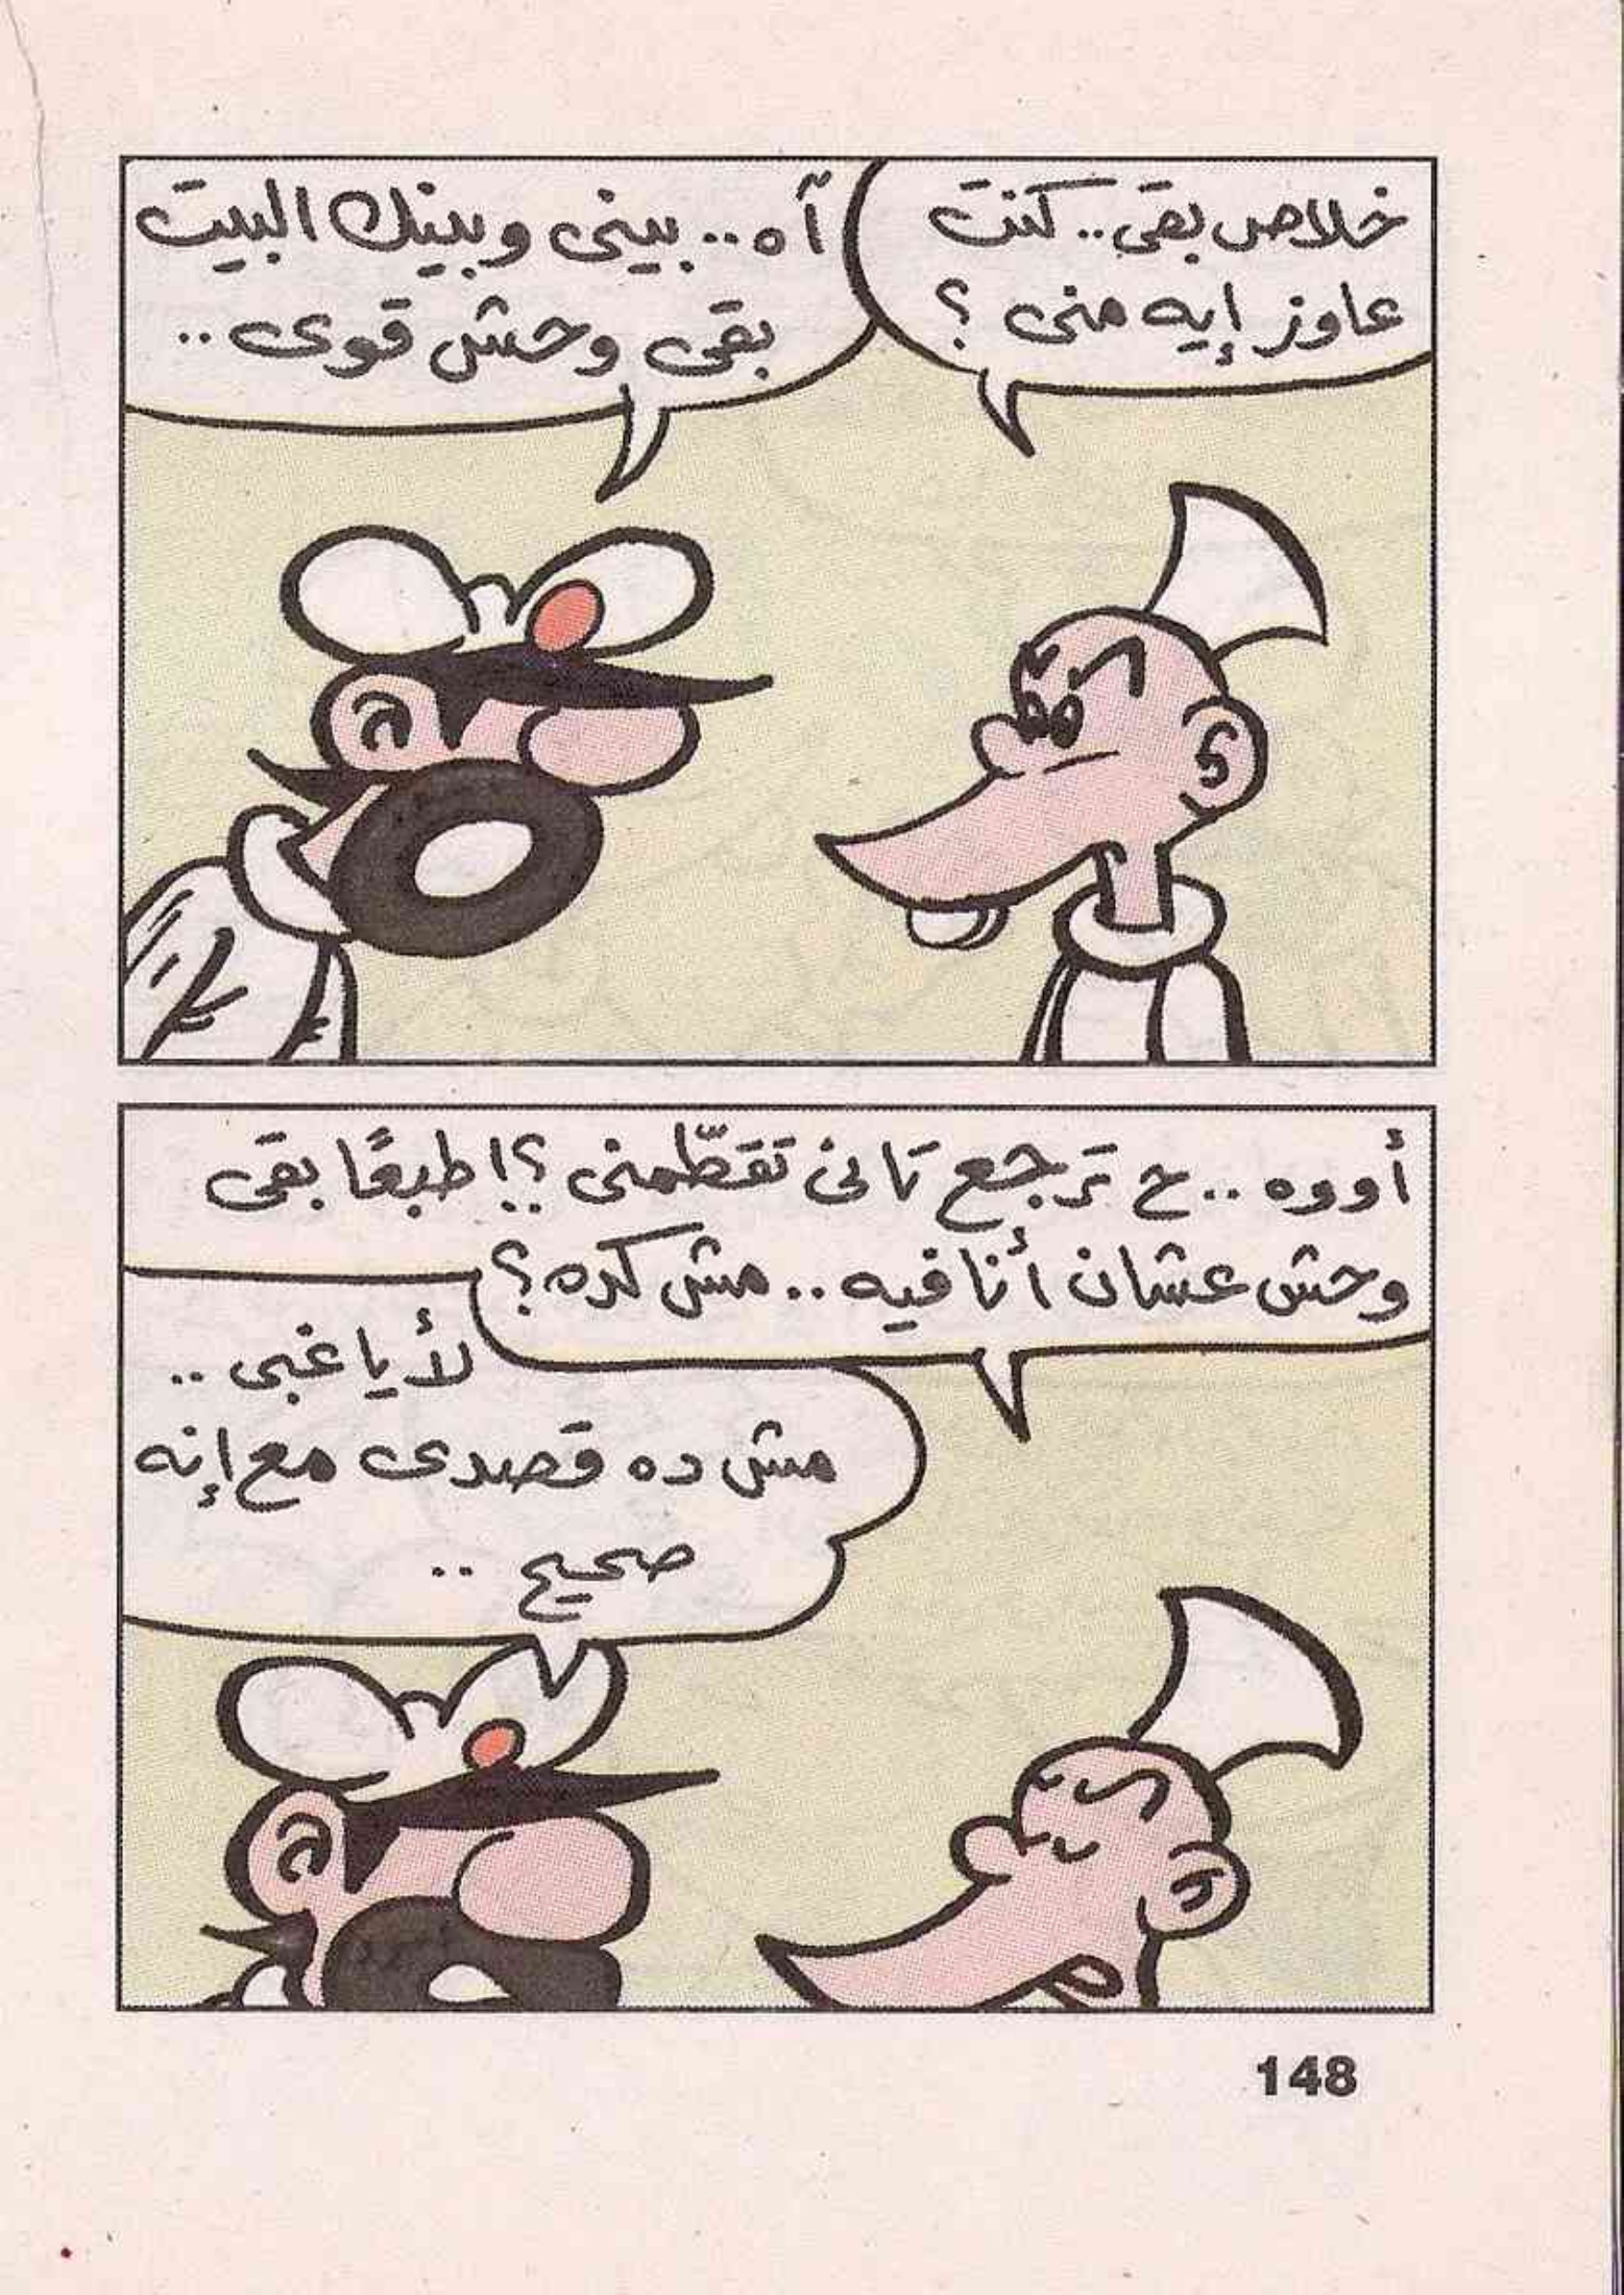 خلاص بقى.. كنت
عاوز إيه منى ؟
آه.. بينى وبينك البيت
بقى وحش قوى..
أووه.. ح ترجع تانى تقطّمنى ؟! طبعًا بقى
وحش عشان أنا فيه.. مش كده ؟
لأ يا غبى..
مش ده قصدى مع إنه
صحيح ..
148